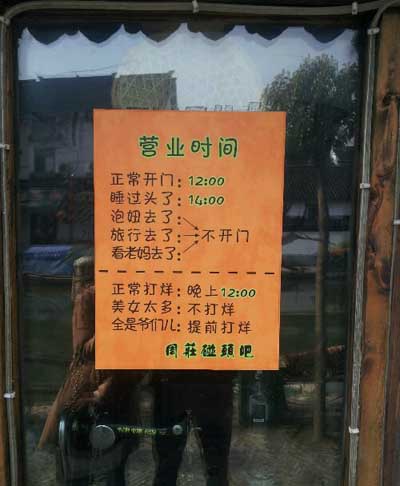 营业时间
正常开门：12:00
睡过头了：14:00
泡妞去了：
旅行去了：不开门
看老妈去了：
正常打烊：晚上12:00
美女太多：不打烊
全是爷们儿：提前打烊
周莊碰頭吧